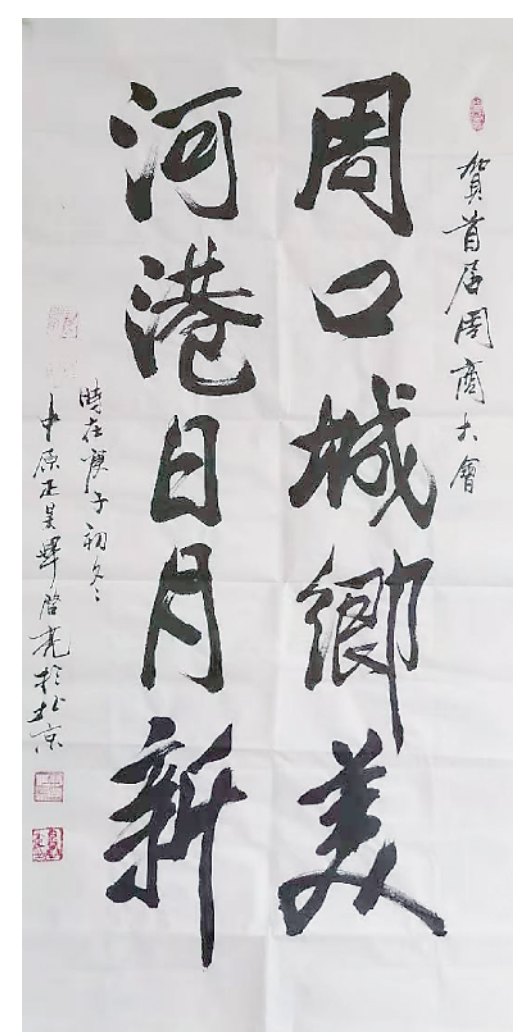 賀首届周商大會
周口城鄉美
河港日月新
時在庚子初冬
中原正昊
啓亮於北京